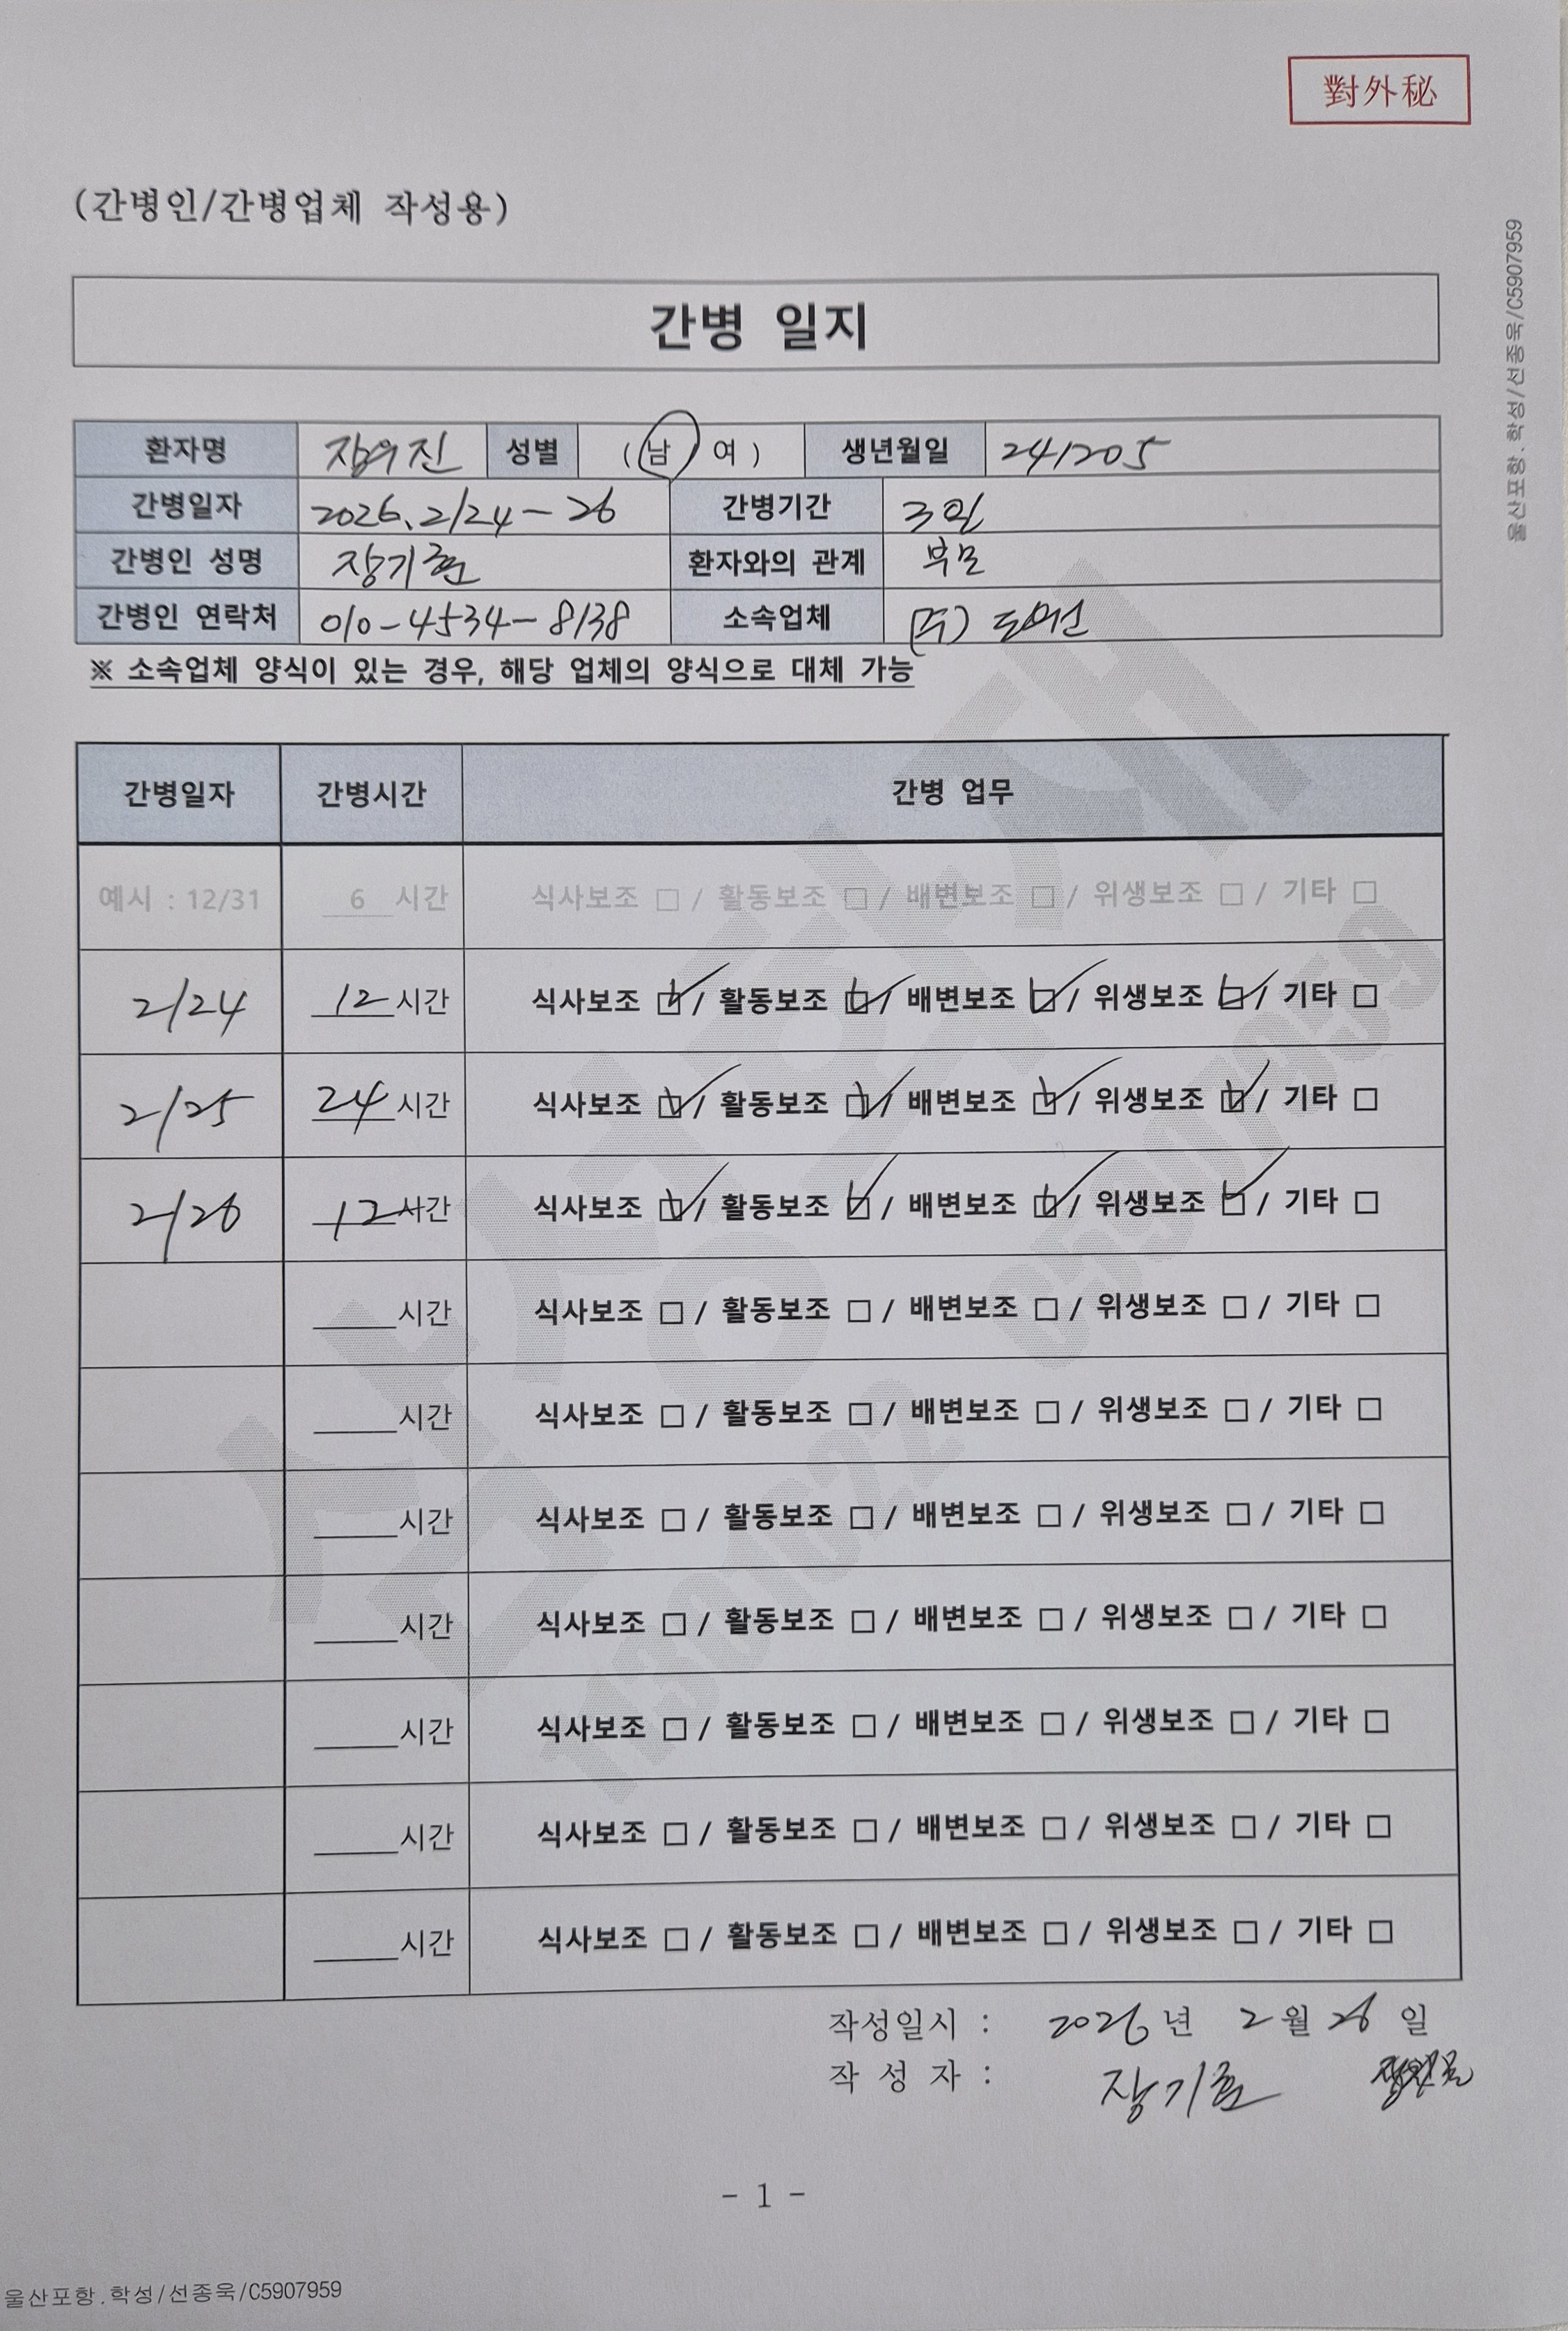 對外秘
(간병인/간병업체 작성용)
울산포항.학성/선종욱/C5907959
간병 일지
환자명 장우진 성별 (남 여) 생년월일 241205
간병일자 2026. 2/24 - 26 간병기간 3일
간병인 성명 장기훈 환자와의 관계 부모
간병인 연락처 010-4534-8138 소속업체 (주)
※ 소속업체 양식이 있는 경우, 해당 업체의 양식으로 대체 가능
간병일자 간병시간 간병 업무
예시 : 12/31 6 시간 식사보조 □ / 활동보조 □ / 배변보조 □ / 위생보조 □ / 기타 □
2/24 12 시간 식사보조 ☑ / 활동보조 ☑ / 배변보조 ☑ / 위생보조 ☑ / 기타 □
2/25 24 시간 식사보조 ☑ / 활동보조 ☑ / 배변보조 ☑ / 위생보조 ☑ / 기타 □
2/26 12 시간 식사보조 ☑ / 활동보조 ☑ / 배변보조 ☑ / 위생보조 ☑ / 기타 □
시간 식사보조 □ / 활동보조 □ / 배변보조 □ / 위생보조 □ / 기타 □
시간 식사보조 □ / 활동보조 □ / 배변보조 □ / 위생보조 □ / 기타 □
시간 식사보조 □ / 활동보조 □ / 배변보조 □ / 위생보조 □ / 기타 □
시간 식사보조 □ / 활동보조 □ / 배변보조 □ / 위생보조 □ / 기타 □
시간 식사보조 □ / 활동보조 □ / 배변보조 □ / 위생보조 □ / 기타 □
시간 식사보조 □ / 활동보조 □ / 배변보조 □ / 위생보조 □ / 기타 □
시간 식사보조 □ / 활동보조 □ / 배변보조 □ / 위생보조 □ / 기타 □
작성일시 : 2026 년 2 월 26 일
작 성 자 : 장기훈
- 1 -
울산포항.학성/선종욱/C5907959